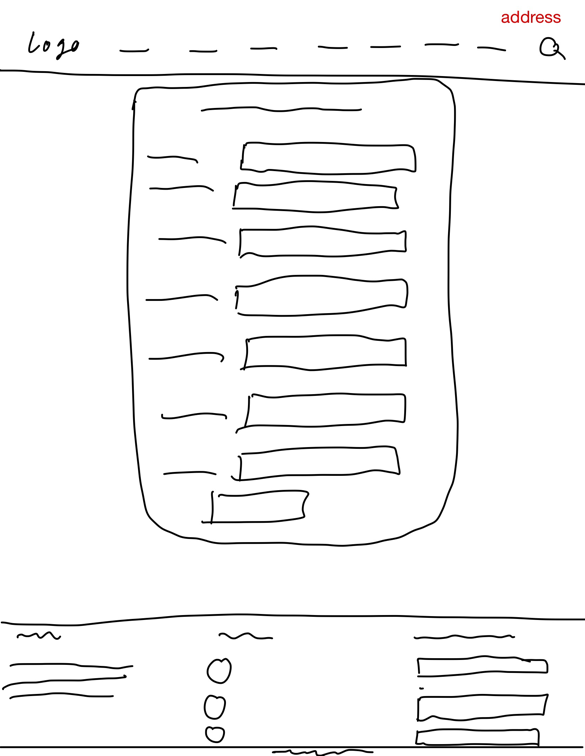 address
Logo